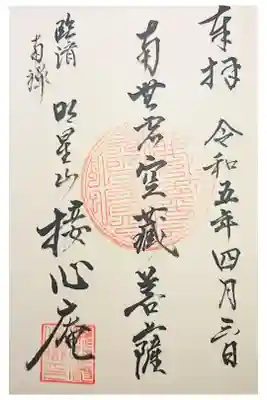 奉拝 令和五年四月三日
南無虚空蔵菩薩
臨済
南禅
明星山 接心庵